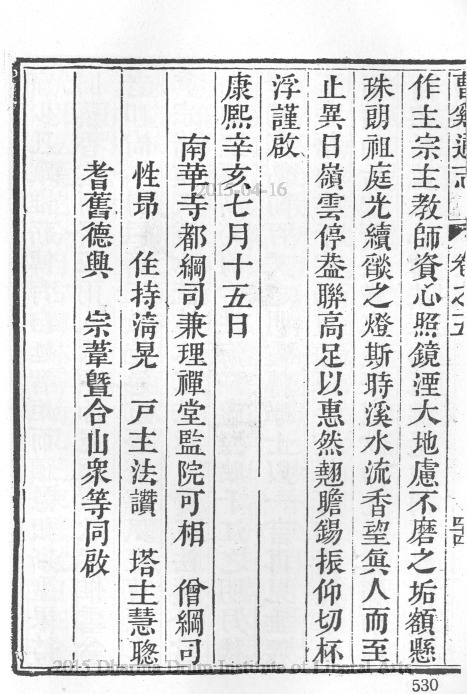 曹溪通志 卷之五
作主宗主教師資心照鏡湮大地慮不磨之垢額懸
珠朗祖庭光續燄之燈斯時溪水流香望真人而至
止異日嶺雲停葢聯高足以惠然翹瞻錫振仰切杯
浮謹啟
康熙辛亥七月十五日
南華寺都綱司兼理禪堂監院可相 僧綱司
性昂 住持清晃 戸主法讚 塔主慧聰
耆舊德興 宗葦曁合山衆等同啟
2015-04-16
2015 Dharma Drum Institute of Liberal Arts
530